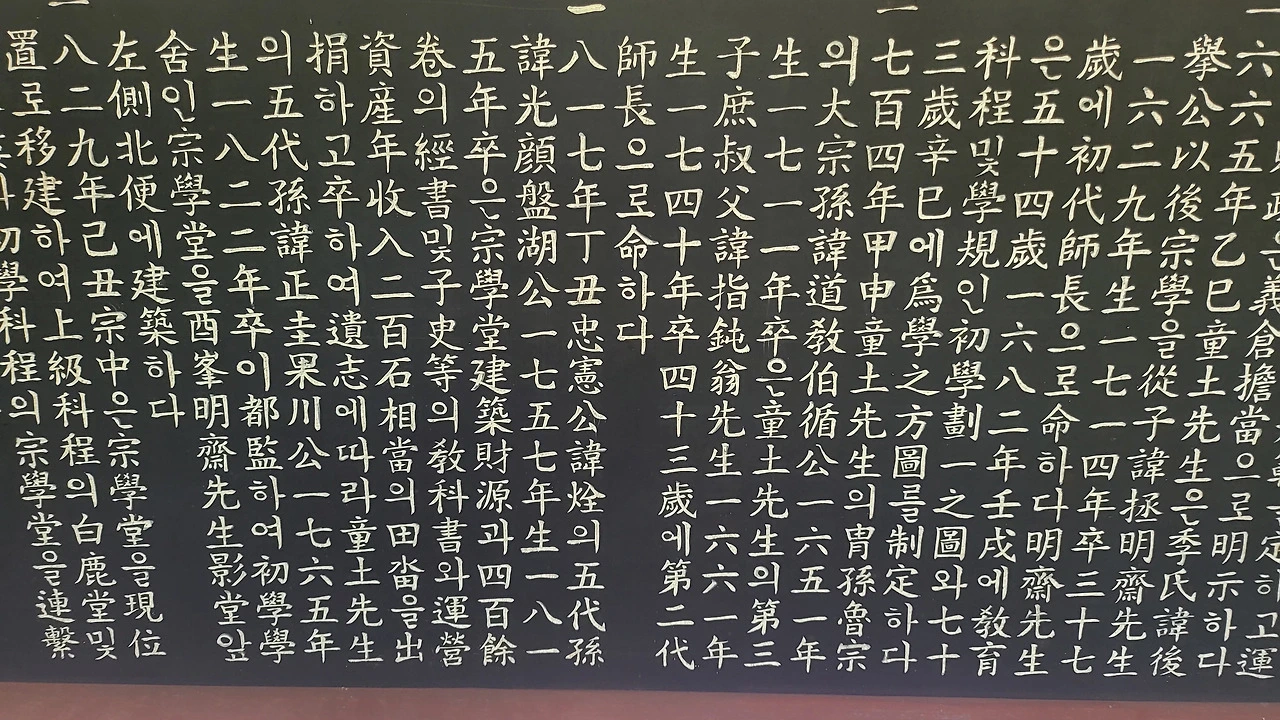 定하고運
은義倉擔當으로明示하다
一六六五年乙巳童土先生은季氏諱後
擧公以後宗學을從子諱拯明齋先生
一六二九年生一七一四年卒三十七
歲에初代師長으로命하다明齋先生
은五十四歲一六八二年壬戌에敎育
科程및學規인初學劃一之圖와七十
三歲辛巳에爲學之方圖를制定하다
一七百四年甲申童土先生의冑孫魯宗
의大宗孫諱道敎伯循公一六五一年
生一七一一年卒은童土先生의第三
子庶叔父諱指鈍翁先生一六六一年
生一七四十年卒四十三歲에第二代
師長으로命하다
一八一七年丁丑忠憲公諱烇의五代孫
諱光顔盤湖公一七五七年生一八一
五年卒은宗學堂建築財源과四百餘
卷의經書및子史等의敎科書와運營
資産年收入二百石相當의田畓을出
捐하고卒하여遺志에따라童土先生
의五代孫諱正圭果川公一七六五年
生一八二二年卒이都監하여初學學
舍인宗學堂을酉峯明齋先生影堂앞
左側北便에建築하다
一八二九年己丑宗中은宗學堂을現位
置로移建하여上級科程의白鹿堂및
初學科程의宗學堂을連繫